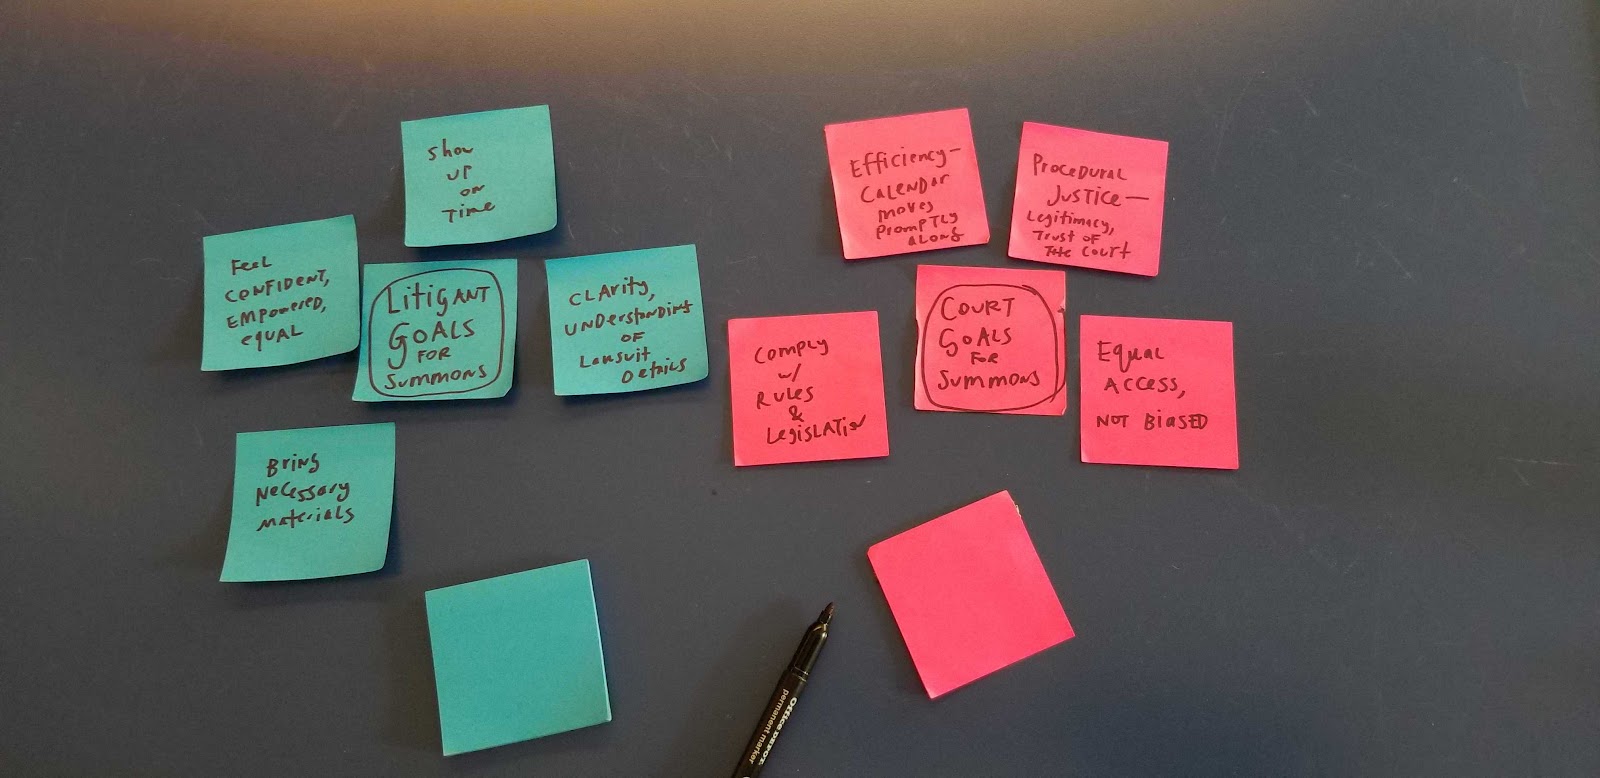 Show
up
on
Time
Feel
CONFIDENT,
EMPowered,
equal
LitigANT
GOALS
FOR
SUMMONS
CLArity,
UNDerstanding
OF
Lawsuit
Details
Bring
Necessary
Materials
Efficiency—
CALENDAR
Moves
PROMPTLY
ALONG
PROCEDURAL
JUSTICE—
Legitimacy,
Trust of
Court
Comply
w/
Rules
&
Legislation
COURT
GOALS
FOR
SUMMONS
Equal
ACCESS,
NOT BIASED
Office DEPOT
permanent marker